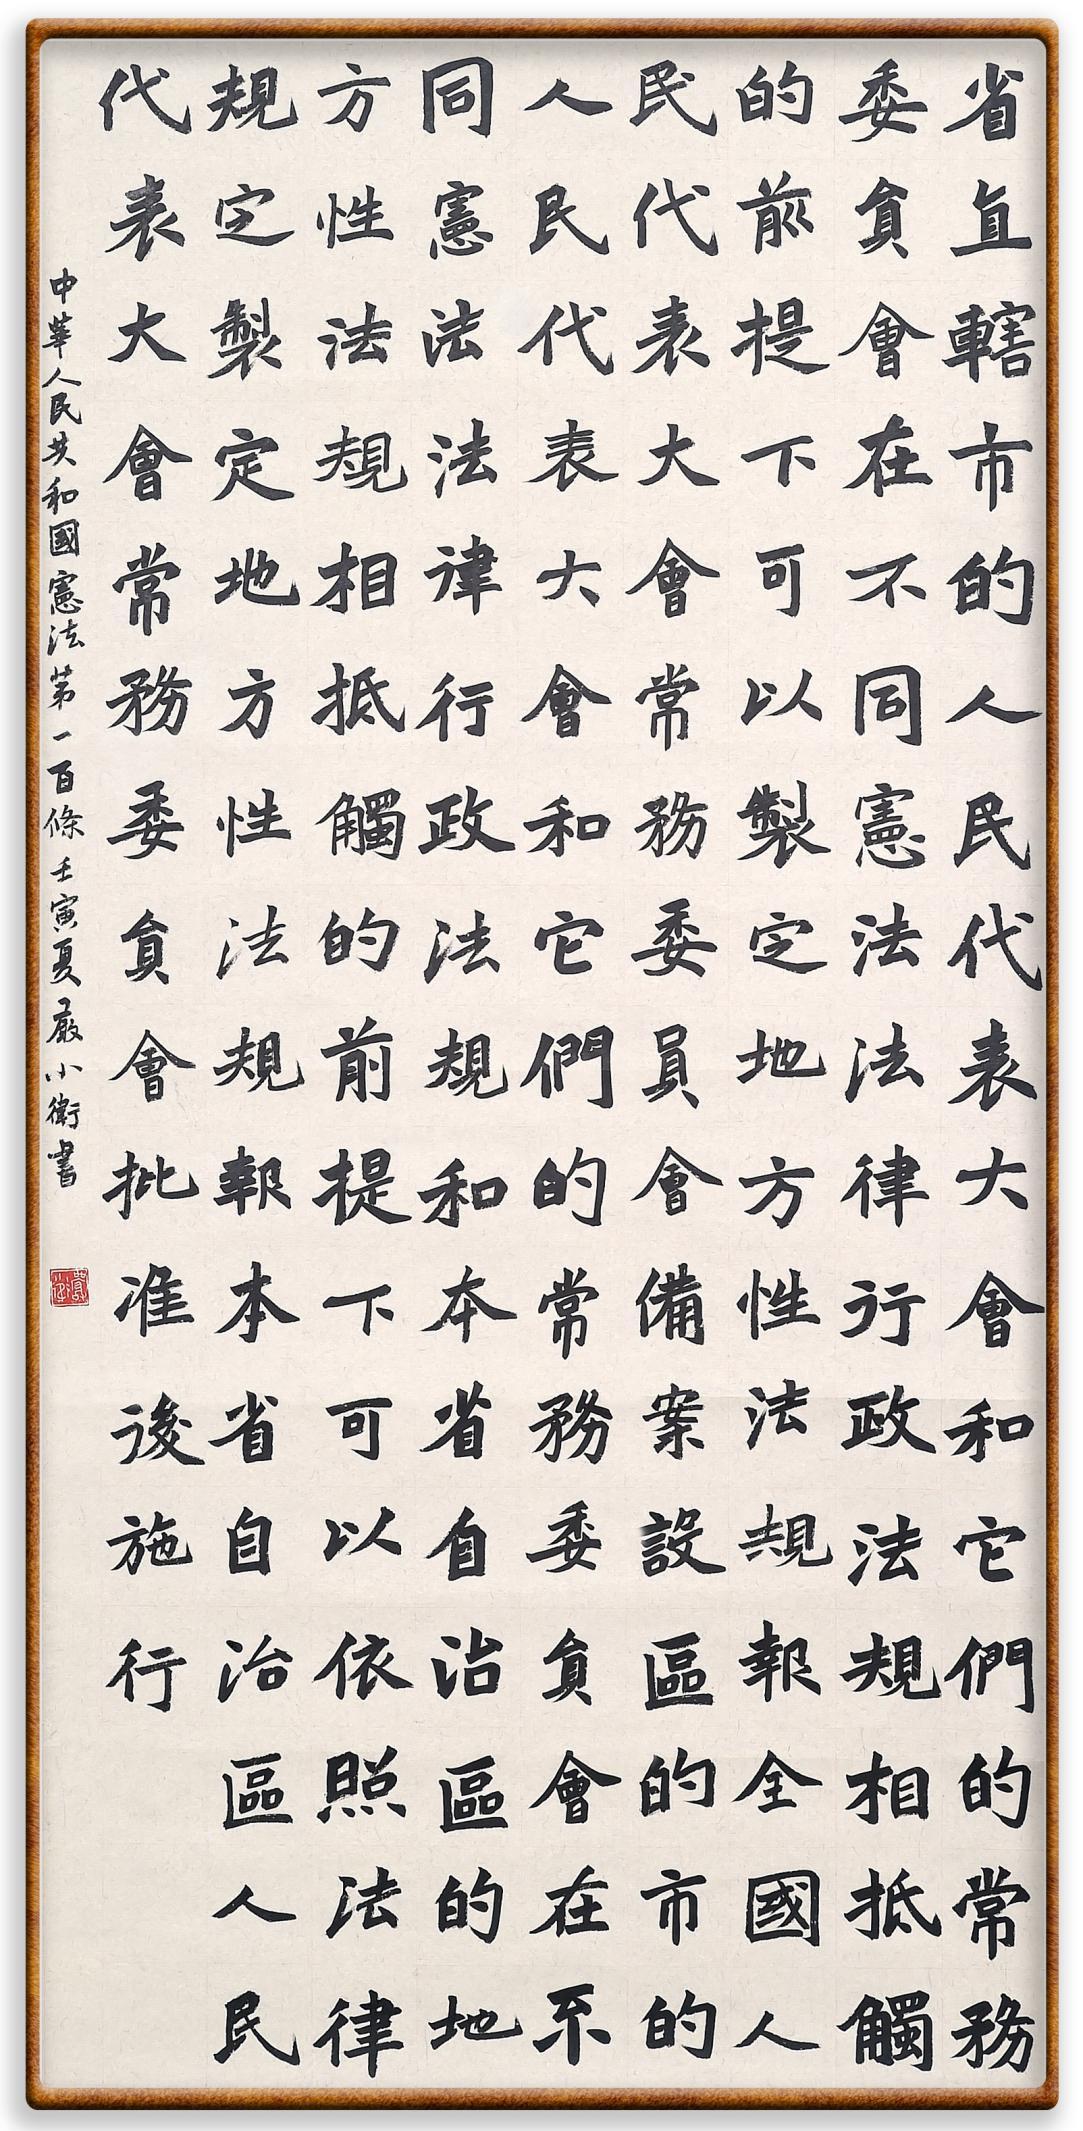 省直轄市的人民代表大會和它們的常務
委員會在不同憲法法律行政法規相抵觸
的前提下可以製定地方性法規報全國人
民代表大會常務委員會備案設區的市的
人民代表大會和它們的常務委員會在不
同憲法法律行政法規和本省自治區的地
方性法規相抵觸的前提下可以依照法律
規定製定地方性法規報本省自治區人民
代表大會常務委員會批准後施行
中華人民共和國憲法第一百條壬寅夏嚴小衛書